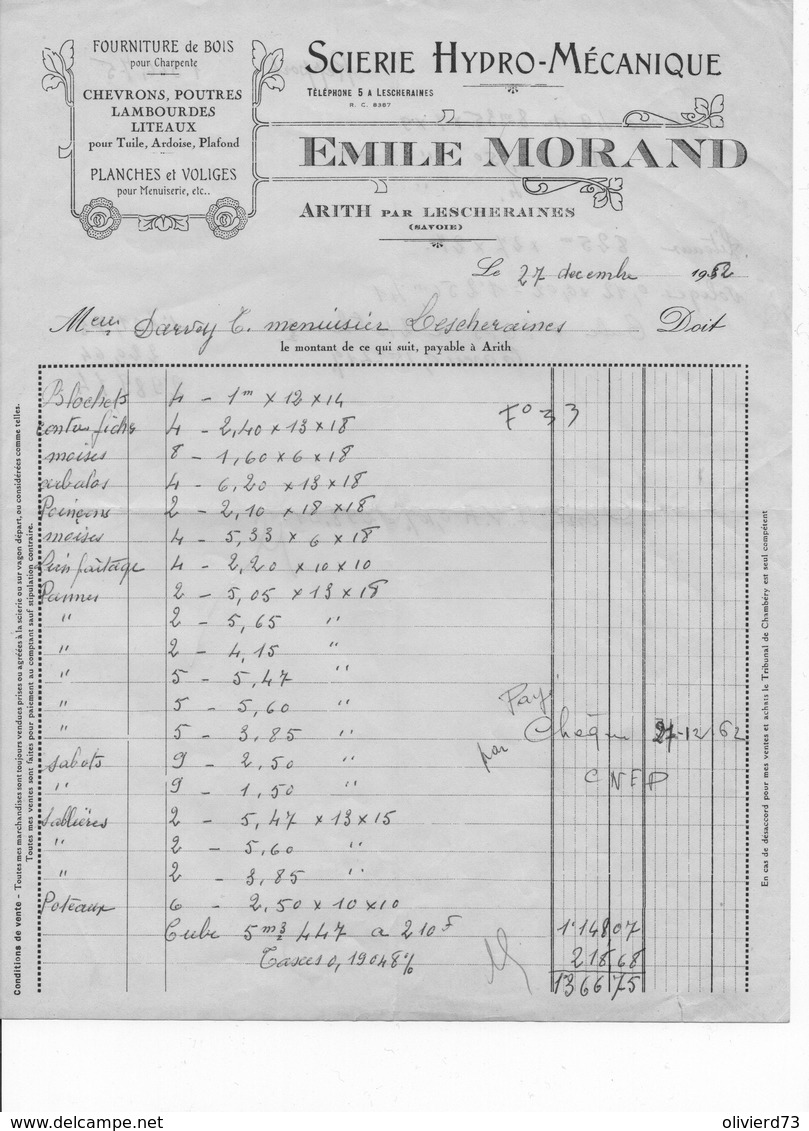 FOURNITURE de BOIS
pour Charpente
CHEVRONS, POUTRES
LAMBOURDES
LITEAUX
pour Tuile, Ardoise, Plafond
PLANCHES et VOLIGES
pour Menuiserie, etc..
SCIERIE HYDRO-MÉCANIQUE
TÉLÉPHONE 5 A LESCHERAINES
R. C. 8387
EMILE MORAND
ARITH PAR LESCHERAINES
(SAVOIE)
Le 27 decembre 1962
Meur Darvey T. menuisier Lescheraines Doit
le montant de ce qui suit, payable à Arith
Blochets 4 - 1m x 12 x 14
F° 33
contre fiche 4 - 2,40 x 13 x 18
moises 8 - 1,60 x 6 x 18
arbalos 4 - 6,20 x 13 x 18
Poinçons 2 - 2,10 x 18 x 18
moises 4 - 5,33 x 6 x 18
lien faitage 4 - 2,20 x 10 x 10
Pannes 2 - 5,05 x 13 x 18
" 2 - 5,65 "
" 2 - 4,15 "
" 5 - 5,47 "
" 5 - 5,60 "
Payé
" 5 - 3,85 "
par Chèque 27-12/62
sabots 9 - 2,50 "
CNEP
" 9 - 1,50 "
Sablières 2 - 5,47 x 13 x 15
" 2 - 5,60 "
" 2 - 3,85 "
Poteaux 6 - 2,50 x 10 x 10
Cube 5 m3 447 a 210F 1148 07
Taxes 0,19048% 218 68
1366 75
Conditions de vente - Toutes mes marchandises sont toujours vendues prises ou agréées à la scierie ou sur wagon départ, ou considérées comme telles.
Toutes mes ventes sont faites pour paiement au comptant sauf stipulation contraire.
En cas de désaccord pour mes ventes et achats le Tribunal de Chambéry est seul compétent
olivierd73